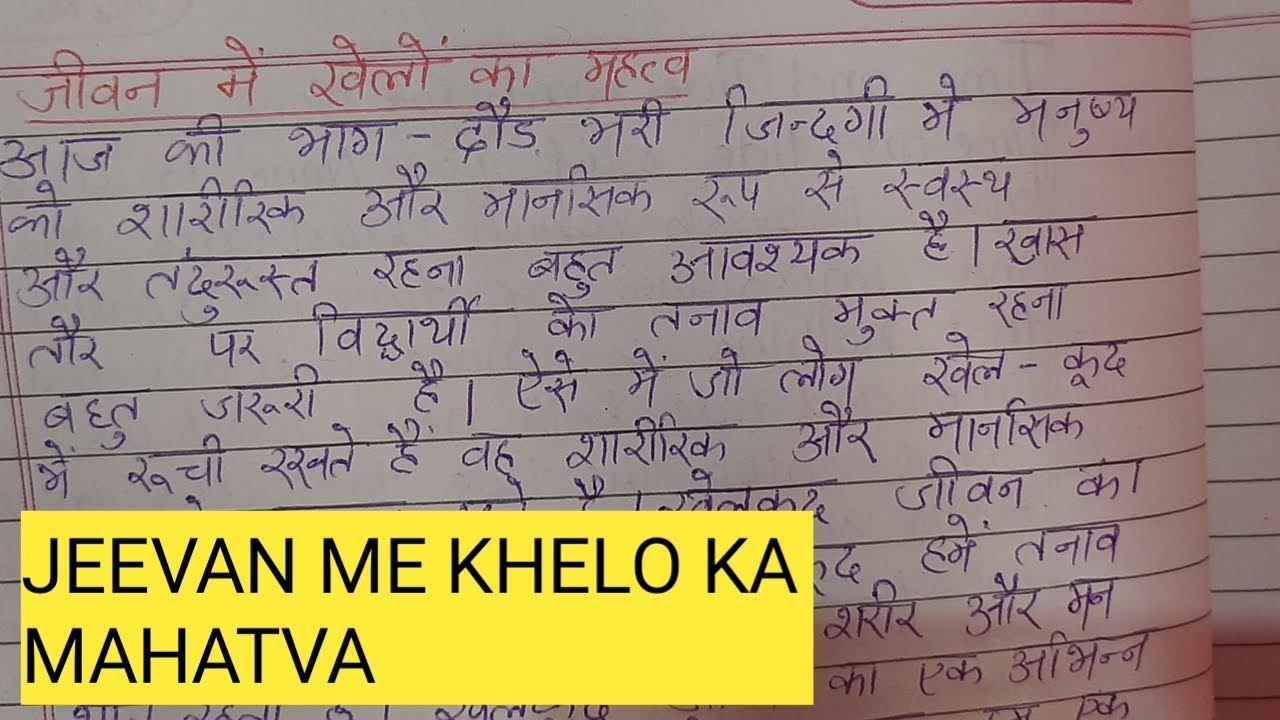 जीवन में खेलों का महत्व
आज की भाग-दौड़ भरी जिन्दगी मे मनुष्य
को शारीरिक और मानसिक रूप से स्वस्थ
और तंदुरूस्त रहना बहुत आवश्यक है। खास
तौर पर विद्यार्थी को तनाव मुक्त रहना
बहुत जरूरी है। ऐसे में जो लोग खेल-कूद
में रूची रखते हैं वह शारीरिक और मानसिक
है। खेलकूद जीवन का
हमें तनाव
शरीर और मन
का एक अभिन्न
JEEVAN ME KHELO KA
MAHATVA